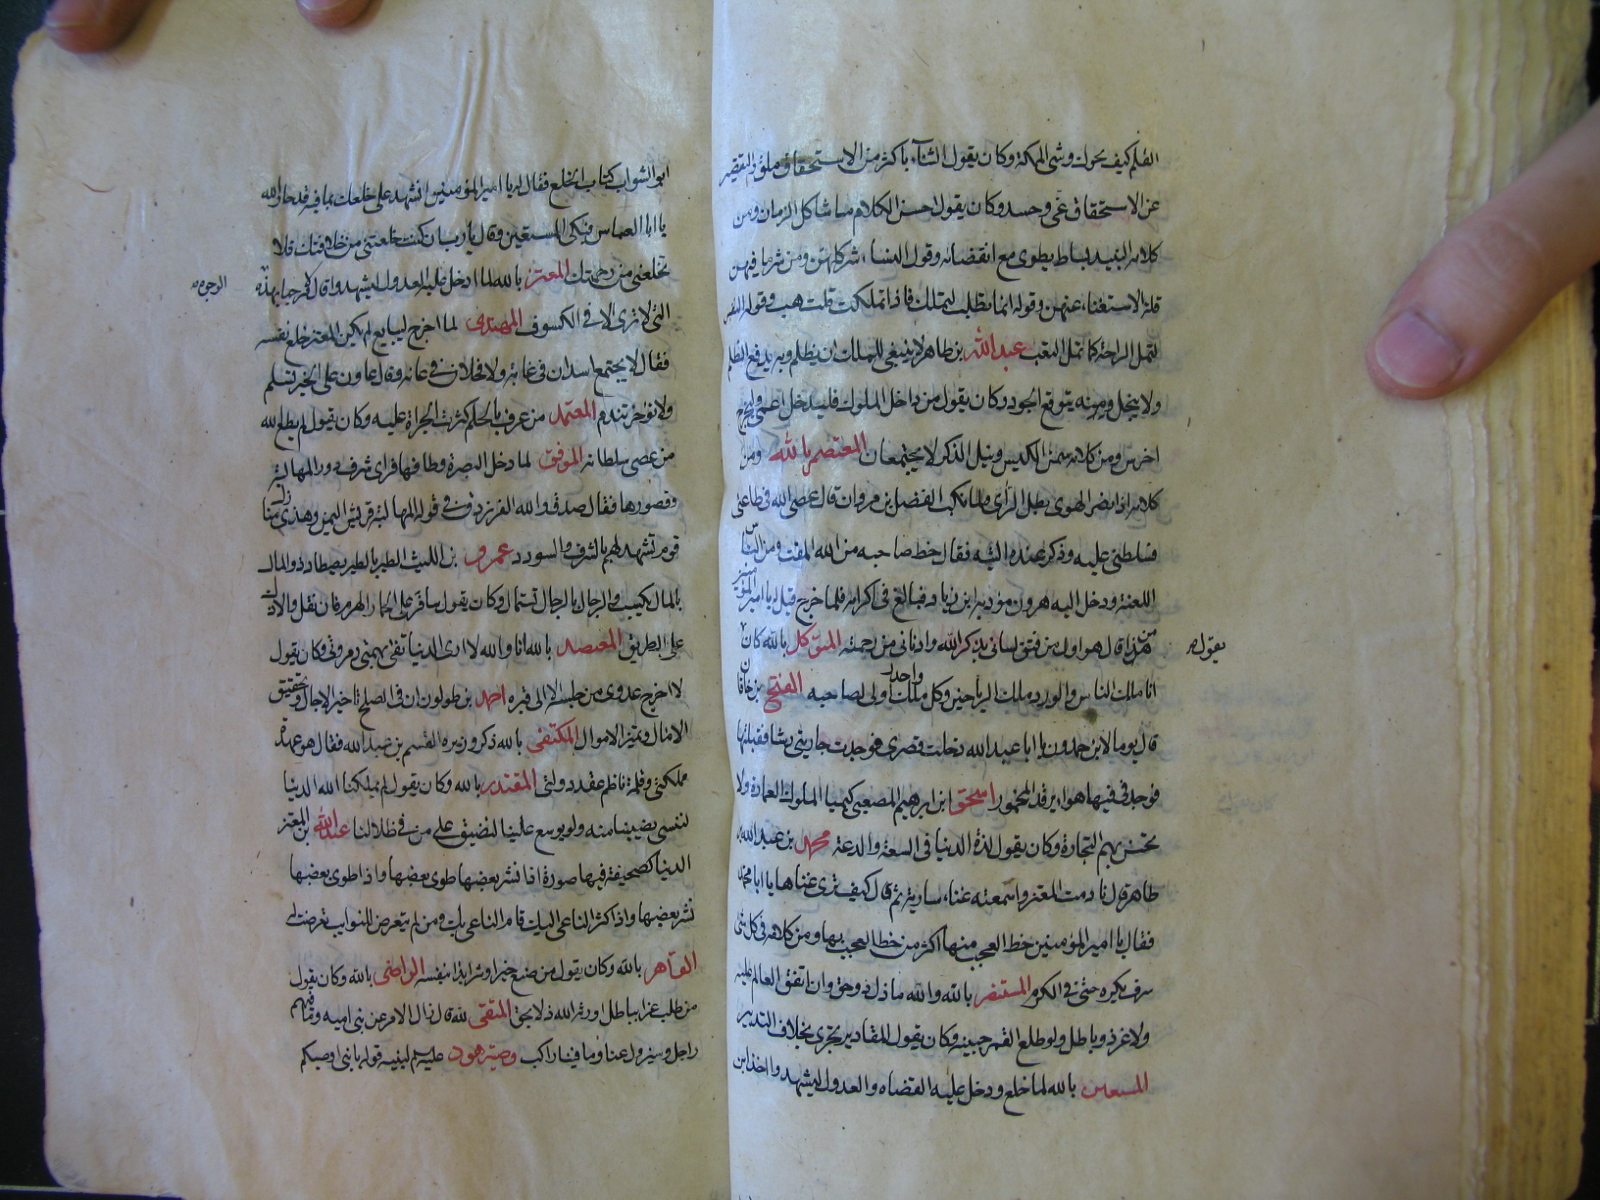 القلم كيف يحرك وشي المملكة وكان يقول الثناء باكثر من الاستحقاق ملق والتقصير
عن الاستحقاق عي وحسد وكان يقول احسن الكلام ما شاكل الزمان ومن
كلامه النبيذ بساط يطوى مع انقضائه وقوله النساء شر كلهن ومن شر ما فيهن
قلة الاستغناء عنهن وقوله انما تطلب لتملك فاذا تملكت قلت هب وقوله النفس
لتمل الراحة كما تمل التعب عبد الله بن طاهر لا ينبغي للملك ان يظلم وبه يدفع الظلم
ولا يبخل ومنه يتوقع الجود وكان يقول من داخل الملوك فليدخل اعمى وليخرج
اخرس ومن كلامه سمن الكيس ونيل الذكر لا يجتمعان المعتصم بالله ومن
كلامه اذا نصر الهوى بطل الرأي ولما نكب الفضل بن مروان قال عصى الله في طاعتي
فسلطني عليه وذكر بعضهم التيه فقال حظ صاحبه من الله المقت ومن الناس
اللعنة ودخل اليه هرون مؤدبه ابن زياد فبالغ في اكرامه فلما خرج قيل له يا امير المؤمنين
من هذا قال هو اول من فتق لساني بذكر الله وادناني من رحمته المتوكل بالله كان
يقول
انا ملك الناس والورد ملك الرياحين وكل ملك واحد اولى لصاحبه الفتح بن خاقان
قال يوما لابن حمدون يا ابا عبد الله دخلت قصري فوجدت جاريتي رشا فقبلتها
فوجدت في فيها هواء يرقد المخمور اسحق ابن ابرهيم المصعبي كيمياء الملوك العمارة ولا
تحسن بهم التجارة وكان يقول لذة الدنيا في السعة والدعة محمد بن عبد الله بن
طاهر قال نادمت المعتز واسمعته غناء سارية ثم قال كيف ترى غناها يا ابا محمد
فقال يا امير المؤمنين حظ العجب منها اكثر من حظ العجب بها ومن كلامه في كل شي
سرف يكره حتى في الكرم المستنصر بالله والله ما ذل ذو حق وان اتفق العالم عليه
ولا عز ذو باطل ولو طلع القمر جبينه وكان يقول المقادير تجري بخلاف التدبير
المستعين بالله لما خلع ودخل عليه القضاه والعدول ليشهدوا اخذ ابن
ابو الشوارب كتاب الخلع فقال له يا امير المؤمنين انشهد على خلعك بما فيه قد خار الله
يا ابا العباس فبكى المستعين وقال يا رب ان كنت خلعتني من خلافتك فلا
تخلعني من رحمتك المعتز بالله لما ادخل عليه العدول ليشهدوا قال لا مرحبا بهذه
الوجوه
التي لا ترى الا في الكسوف المهتدى لما اخرج ليبايع لم يكن المعتز خلع نفسه
فقال لا يجتمع اسدان في غابة ولا فحلان في عانة وقال عاون على الخير تسلم
ولا تؤخر تندم المعتمد من عرف بالحلم كثرت الجراة عليه وكان يقول لم يطع الله
من عصى سلطانه الموفق لما دخل البصرة وطاف بها فراى شرف دور المهالبة
وقصورها فقال صدق والله الفرزدق في قوله المهالبة قريش اليمن وهذي منازل
قوم تشهد لهم بالشرف والسودد عمرو بن الليث الطير بالطير يصطاد والمال
بالمال يكسب والرجال بالرجال تستمال وكان يقول سافر على الحمار الهرم فان نقل والا دلك
على الطريق المعتضد بالله انا والله لا ارى الدنيا تفي بهمتي ومروتي وكان يقول
لا اخرج عدوي من حبسي الا الى قبره احمد بن طولون ان في الصلح تاخير الاجال وتحقيق
الامال وتمييز الاموال المكتفي بالله ذكر وزيره القسم بن عبيد الله فقال هو عمدة
مملكتي وقلمه ناظم عقد دولتي المقتدر بالله وكان يقول لم يملكنا الله الدنيا
لننسى نصيبنا منه ولو يوسع علينا لنضيق على من في ظلالنا عبد الله بن المعتز
الدنيا كصحيفة فيها صورة اذا نشر بعضها طوى بعضها واذا طوى بعضها
نشر بعضها واذا كثر الناعي اليك قام الناعي بك ومن لم يتعرض للنوايب تعرضت له
القاهر بالله وكان يقول من صنع خيرا وشرا بدا بنفسه الراضي بالله وكان يقول
من طلب عزا بباطل اورثه الله ذلا بحق المتقي لله قال زال الامر عن بني امية وما فيهم
راجل وسيزول عنا وما فينا راكب وصية هود عليه السلم لبنيه قوله يا بني اوصيكم